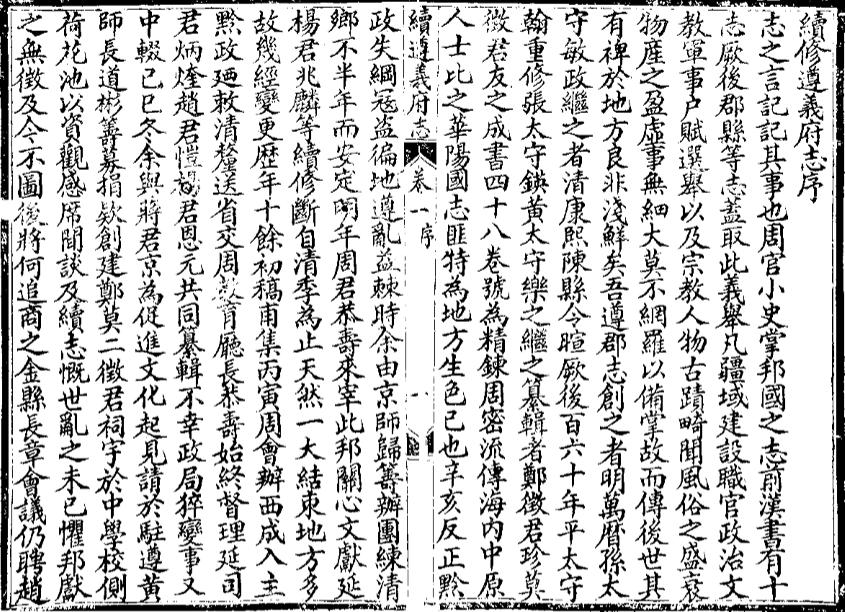 續修遵義府志序
志之言記記其事也周官小史掌邦國之志前漢書有十
志厥後郡縣等志蓋取此義舉凡疆域建設職官政治文
教軍事户賦選舉以及宗教人物古蹟畸聞風俗之盛衰
物產之盈虛事無細大莫不網羅以備掌故而傳後世其
有裨於地方良非淺鮮矣吾遵郡志創之者明萬曆孫太
守敏政繼之者清康熙陳縣令暄厥後百六十年平太守
翰重修張太守鍈黃太守樂之繼之纂輯者鄭徵君珍莫
徵君友之成書四十八卷號為精鍊周密流傳海內中原
人士比之華陽國志匪特為地方生色已也辛亥反正黔
續遵義府志 卷一 序 一
政失綱冠盗徧地遵亂益棘時余由京師歸籌辦團練清
鄉不半年而安定明年周君恭壽來宰此邦關心文獻延
楊君兆麟等續修斷自清季為止天然一大結束地方多
故幾經變更歷年十餘初稿甫集丙寅周會辦西成入主
黔政廼敕清釐送省交周教育廳長恭壽始終督理延司
君炳煃趙君愷楊君恩元共同纂輯不幸政局猝變事又
中輟己巳冬余與蔣君京為促進文化起見請於駐遵黃
師長道彬籌募捐欵創建鄭莫二徵君祠宇於中學校側
荷花池以資觀感席間談及續志慨世亂之未已懼邦獻
之無徵及今不圖後將何追商之金縣長章會議仍聘趙